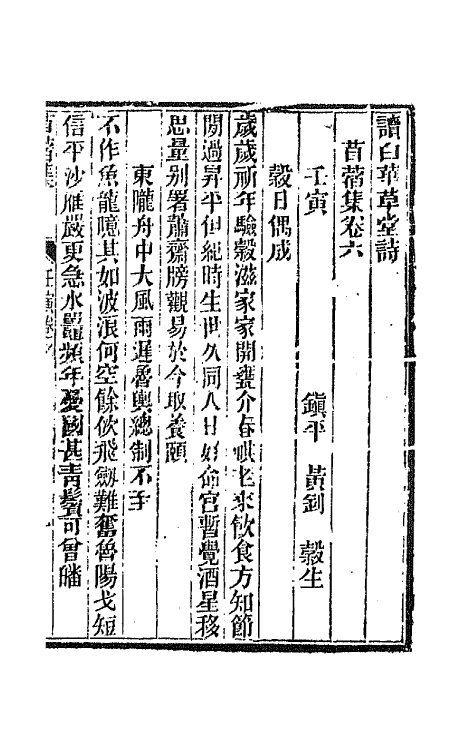 讀白華草堂詩
苜蓿集卷六
壬寅 鎭平 黃釗 穀生
穀日偶成
歲歲祈年驗穀滋家家開甕介春祺老來飲食方知節
閒過昇平但紀時生世久同人日好命宮暫覺酒星移
思量别署蕭齋牓觀易於今取養頤
東隴舟中大風雨遲魯輿總制不至
不作魚龍噫其如波浪何空餘佽飛劒難奮魯陽戈短
信平沙雁嚴更急水鼉頻年憂國甚靑鬢可曾皤
苜蓿集 壬寅卷六 一